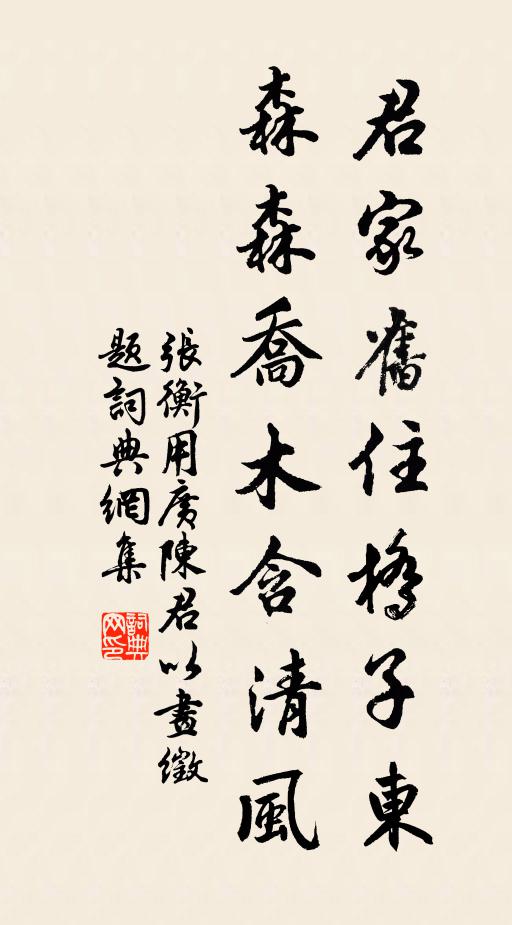 君家舊住橋子東
森森喬木含清風
張衡用廣陳君以畫徵
題詞典網集
詞典网印